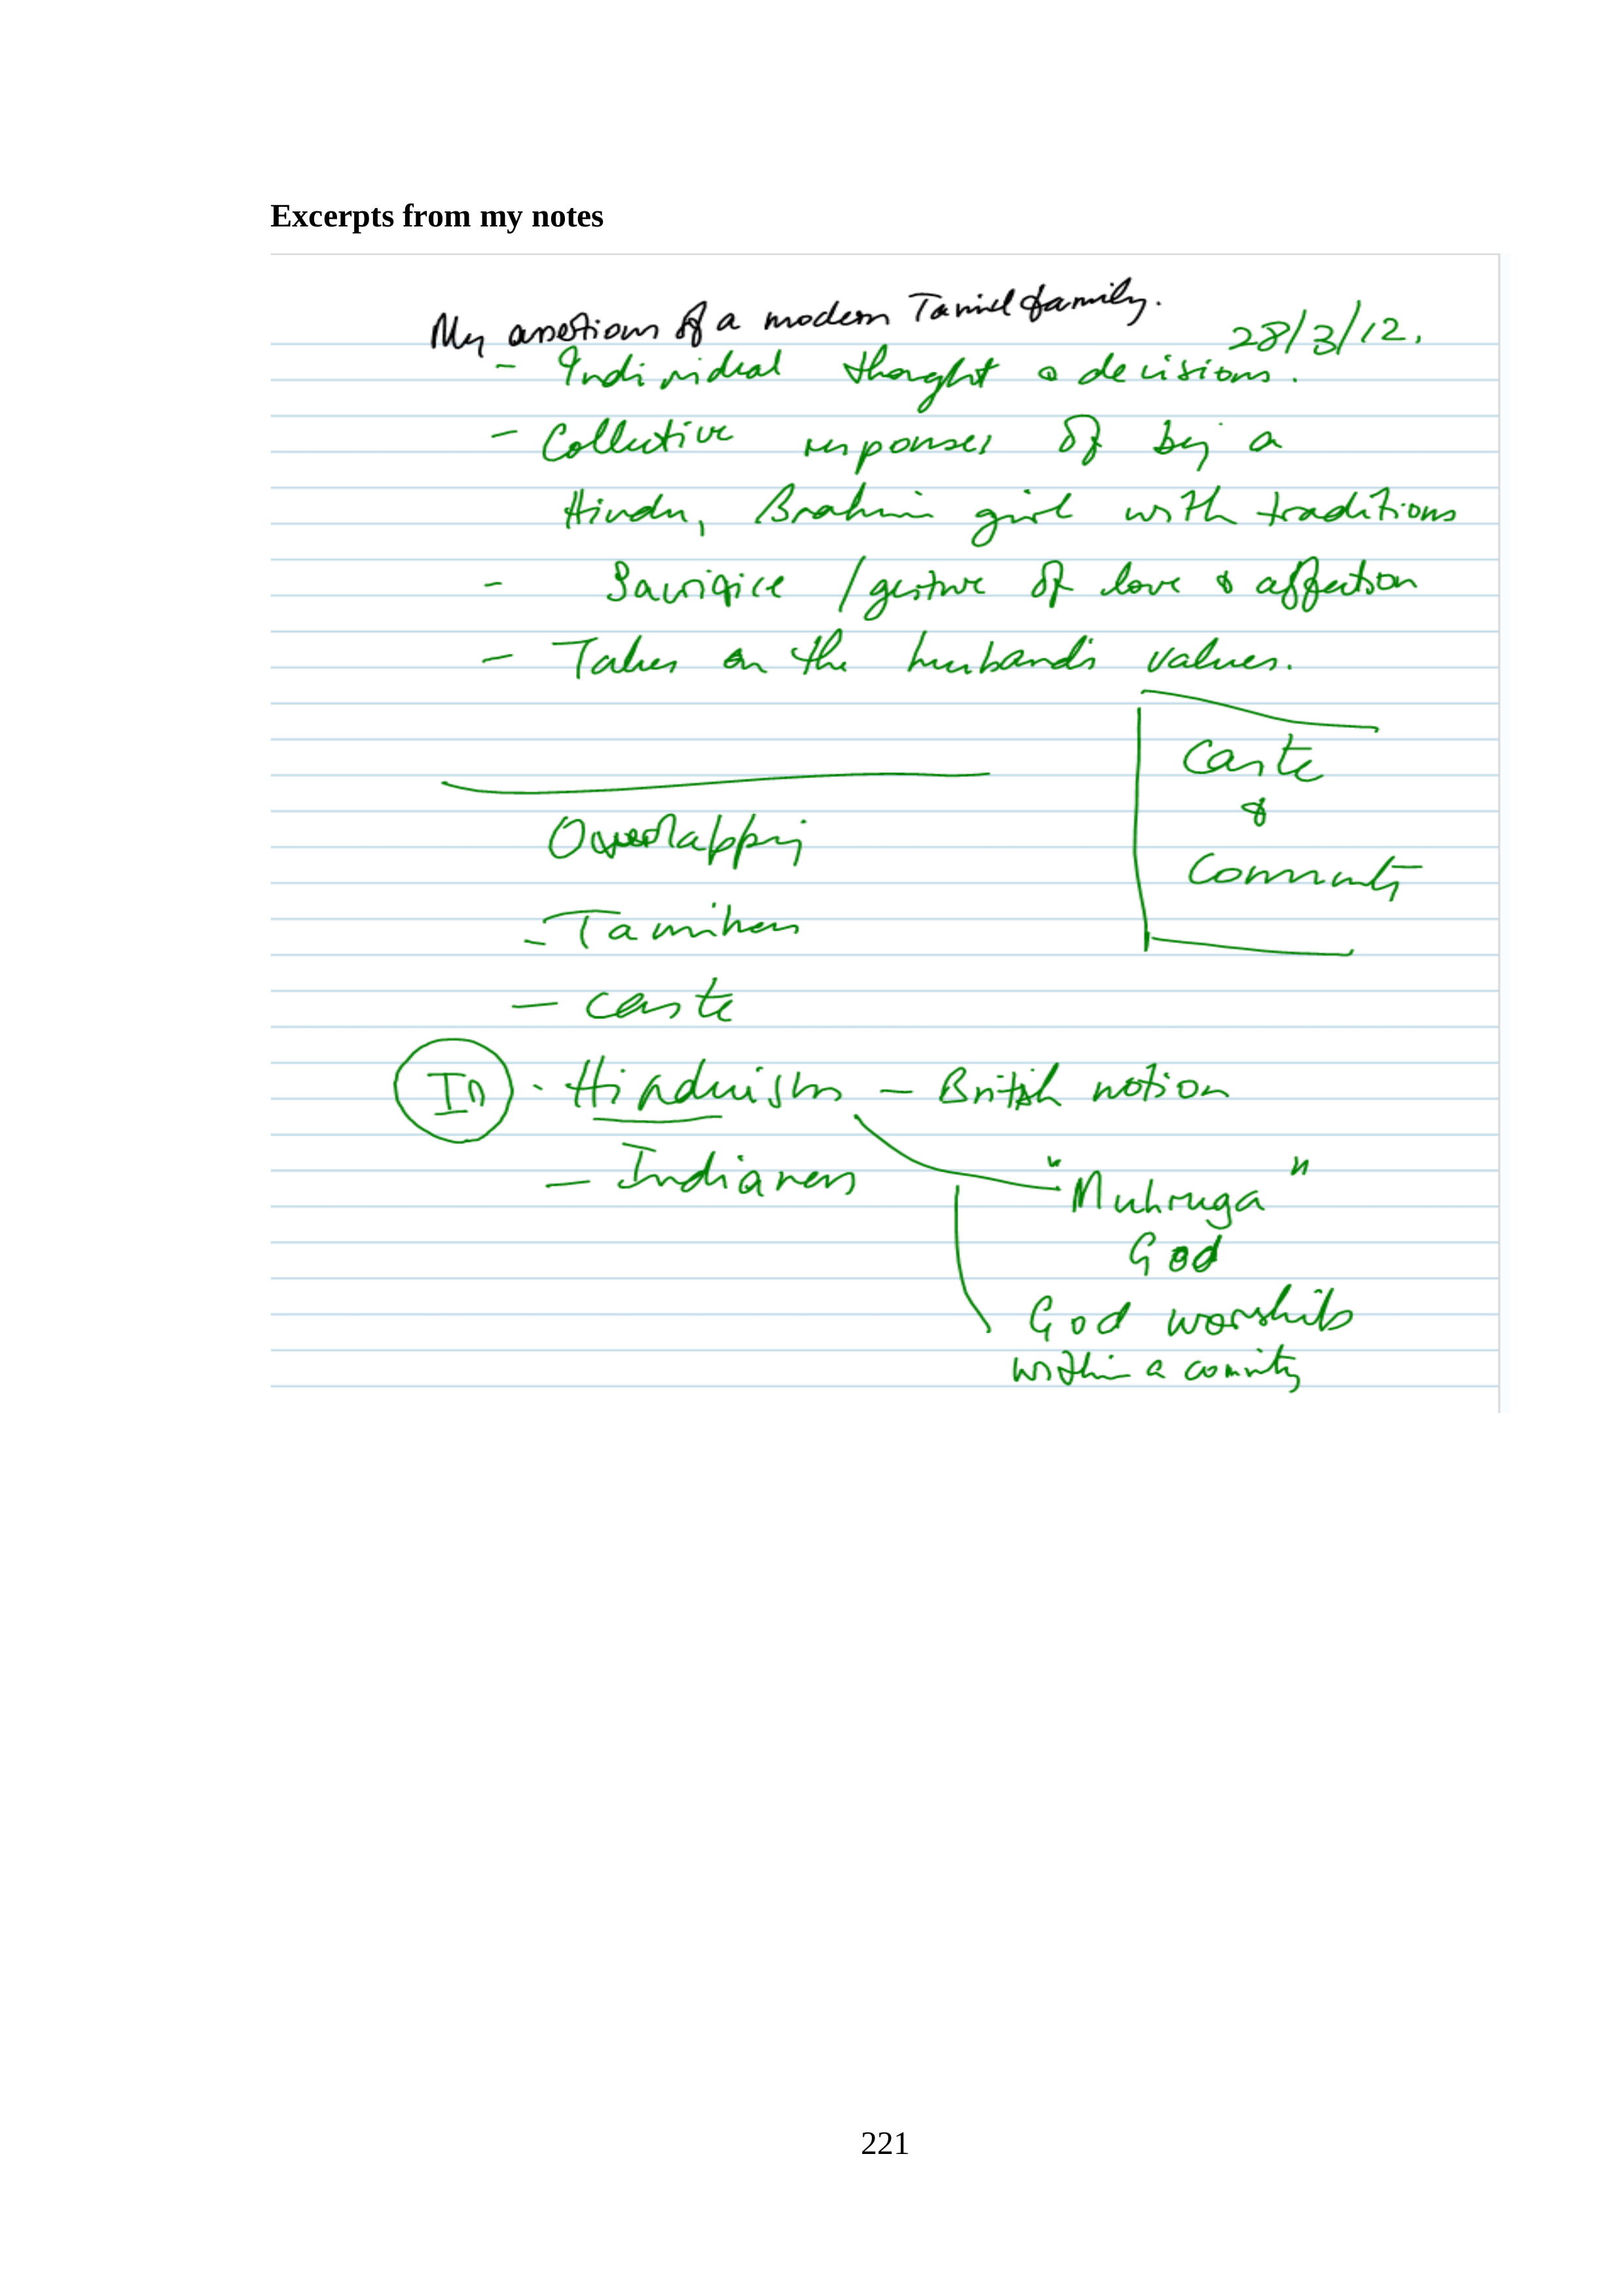 Excerpts from my notes
My assertions of a modern Tamil family.
28/3/12.
- Individual thought & decisions.
- Collective responses of being a
Hindu, Brahmin girl with traditions
- Sacrifice / gesture of love & affection
- Takes on the husbands values.
Caste
&
Community
Overlapping
- Tamilness
- caste
In · Hinduism - British notion
- Indianness
"Muhruga"
God
God worships
within a community
221